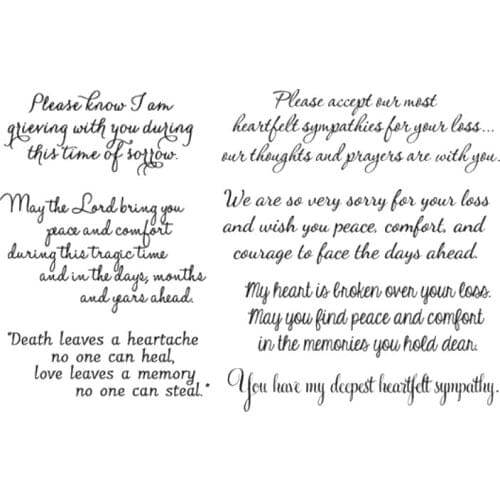 Please know I am
grieving with you during
this time of sorrow.
May the Lord bring you
peace and comfort
during this tragic time
and in the days, months
and years ahead.
"Death leaves a heartache
no one can heal,
love leaves a memory
no one can steal."
Please accept our most
heartfelt sympathies for your loss...
our thoughts and prayers are with you.
We are so very sorry for your loss
and wish you peace, comfort, and
courage to face the days ahead.
My heart is broken over your loss.
May you find peace and comfort
in the memories you hold dear.
You have my deepest heartfelt sympathy.